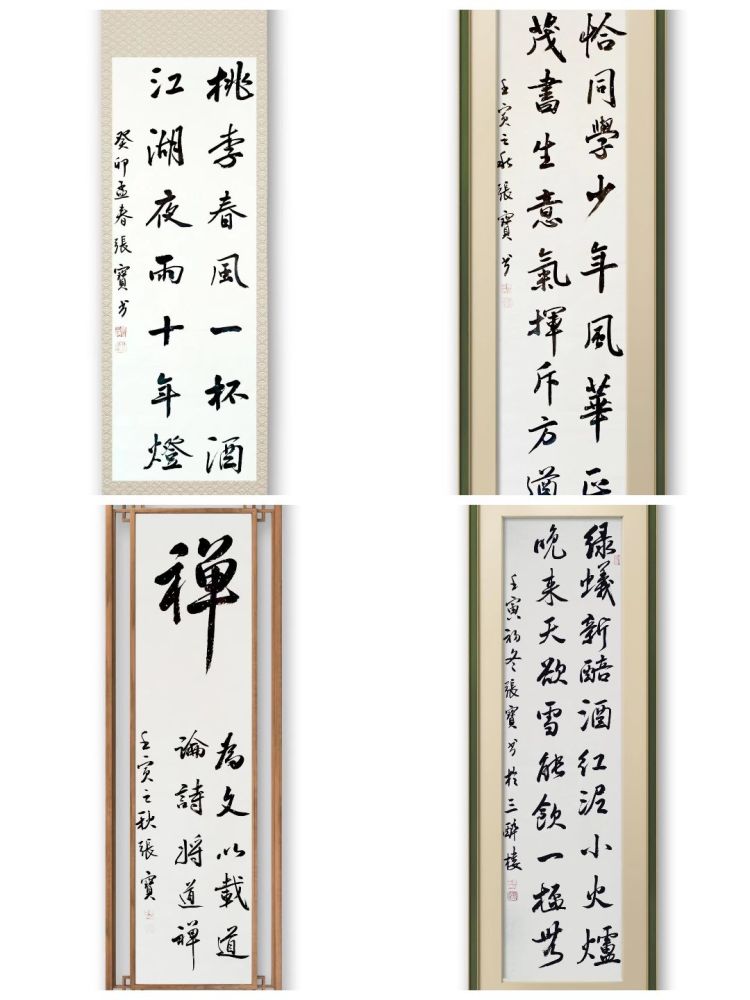 桃李春風一杯酒
江湖夜雨十年燈
癸卯孟春張寶書
恰同學少年風華正
茂書生意氣揮斥方遒
壬寅之秋張寶書
禅
為文以載道
論詩將道禅
壬寅之秋張寶
绿蟻新醅酒红泥小火爐
晚来天欲雪能飲一極無
壬寅初冬張寶書於三醉樓